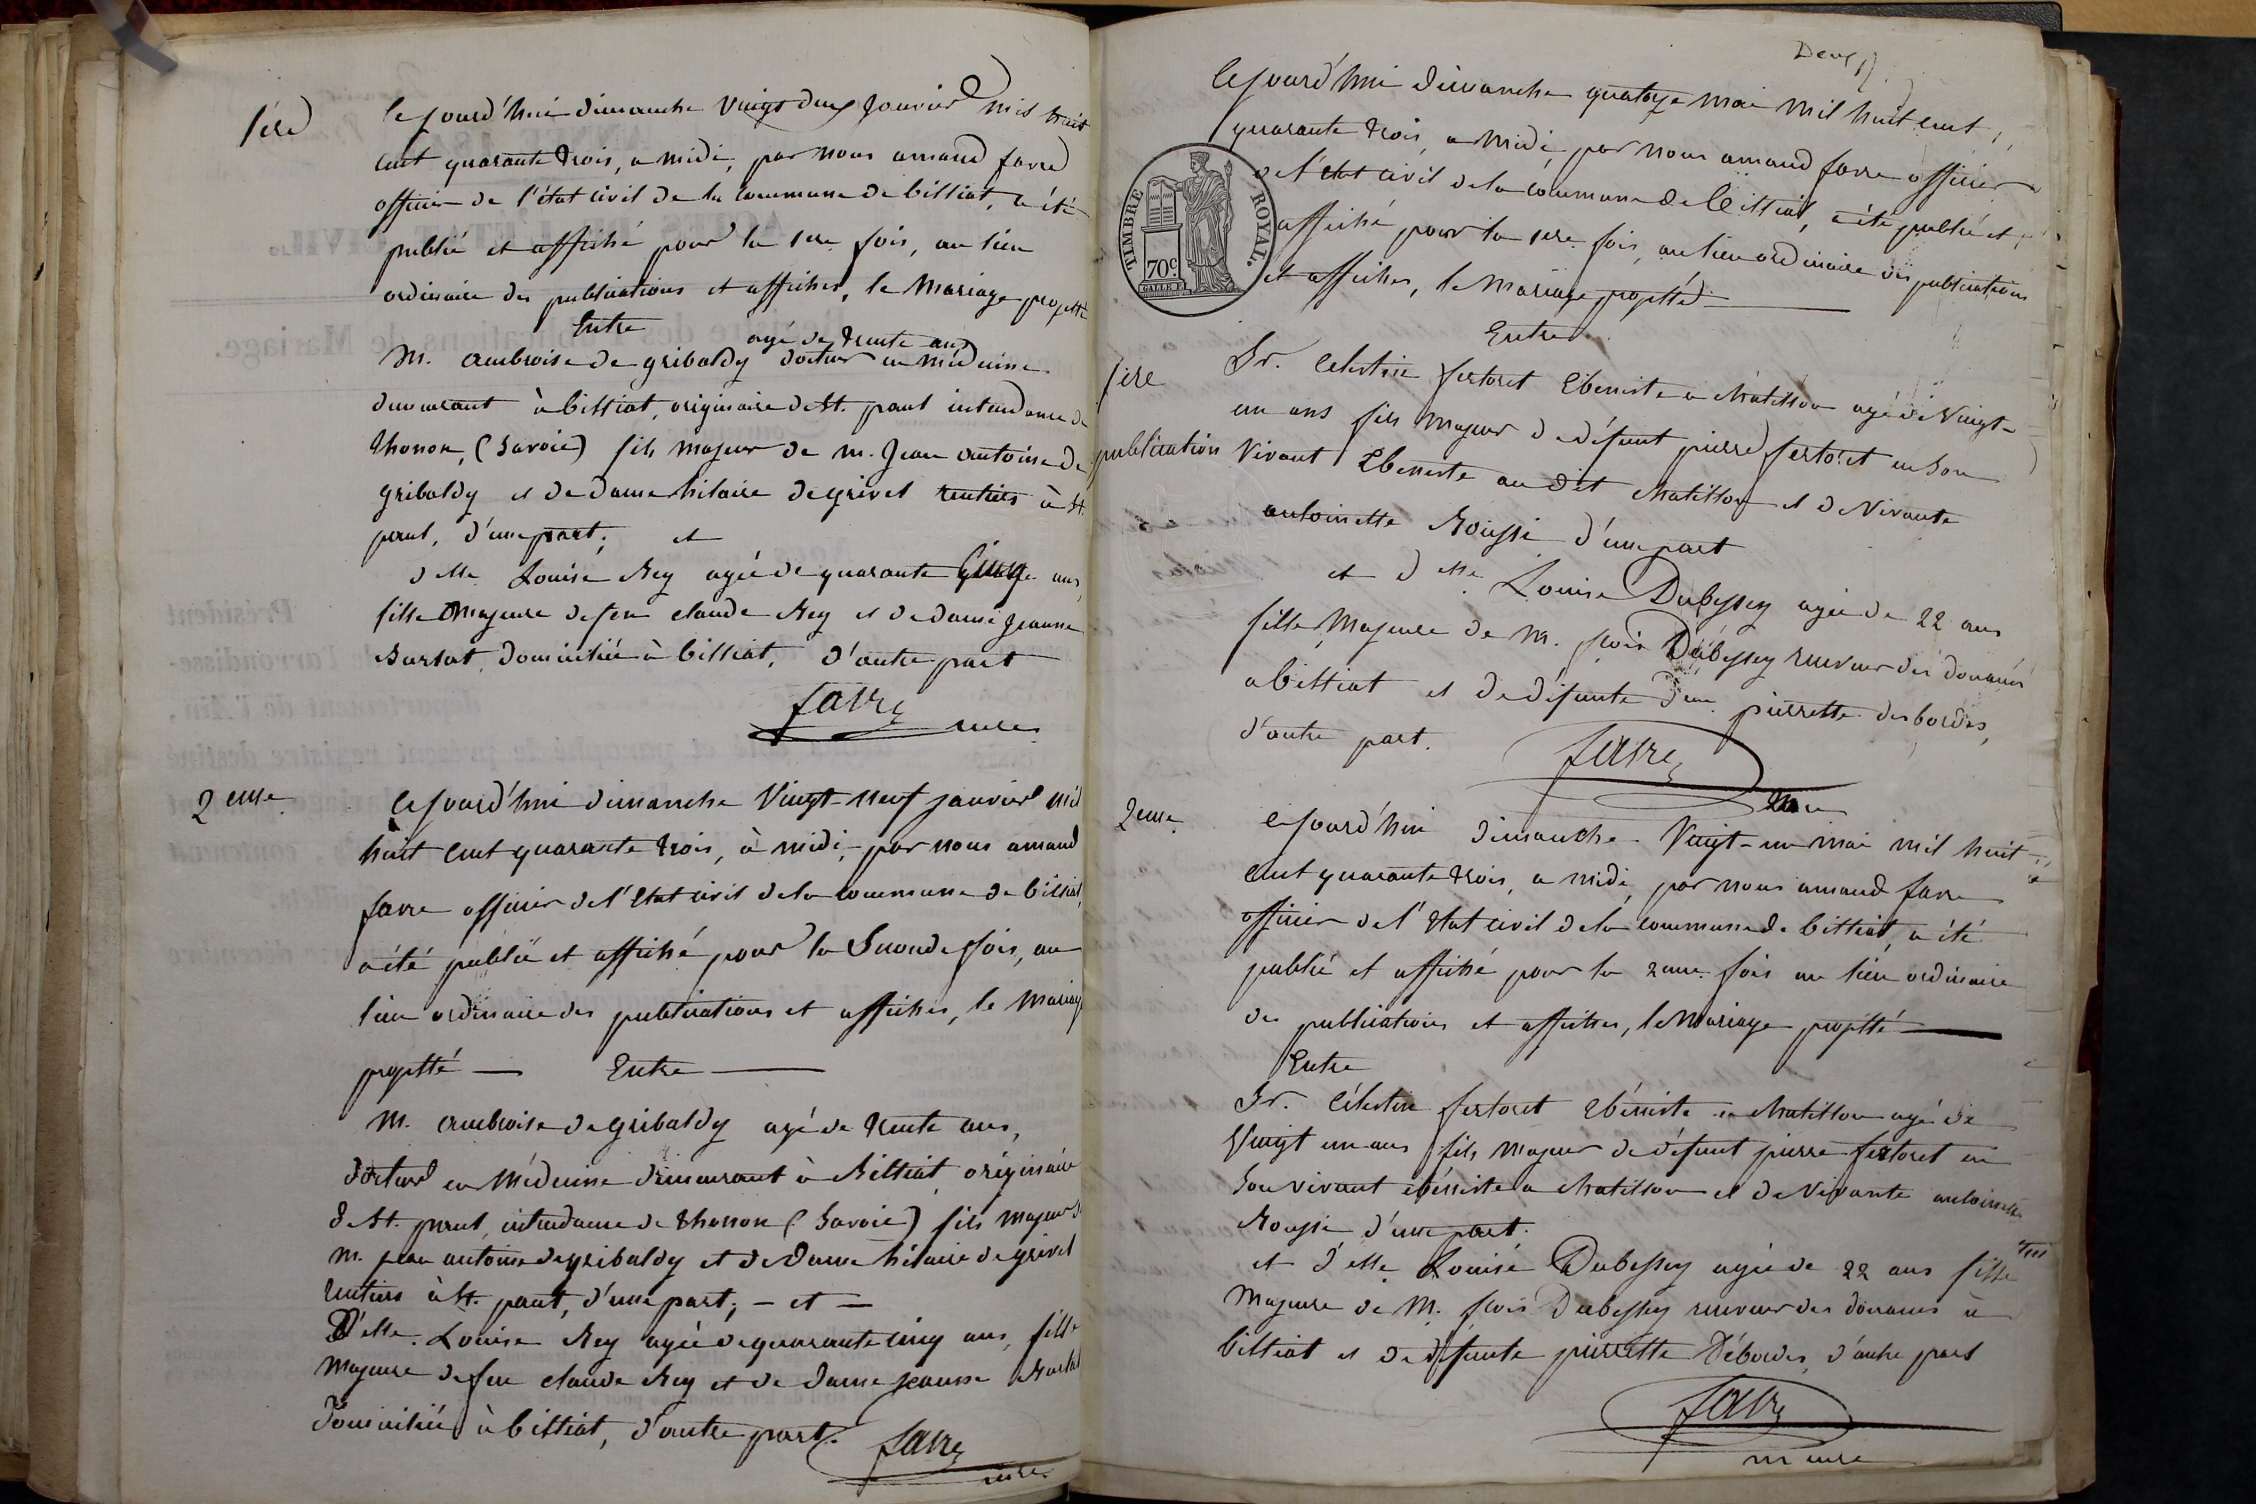 1ere
Cejourd'hui dimanche vingt deux janvier mil huit
cent quarante trois, a midi, par nous amand favre
officier de l'état civil de la commune de billiat, a été
publié et affiché pour la 1ere fois, au lieu
ordinaire des publications et affiches, le mariage projetté
Entre
agé de trente ans
M. ambroise de gribaldy docteur en médecine
demeurant à billiat, originaire de St. paul intendance de
thonon, (Savoie) fils majeur de m. Jean antoine de
gribaldy et de dame hilaire de grivel rentiers à St.
paul, d'une part; et
delle Louise Rey agée de quarante cinq ans
fille majeure de feu claude Rey et de dame jeanne
domiciliée à billiat, d'autre part
favre
maire
2eme
Cejourd'hui dimanche vingt-neuf janvier mil
huit cent quarante trois, à midi, par nous amand
favre officier de l'état civil de la commune de billiat,
a été publié et affiché pour la Seconde fois, au
lieu ordinaire des publications et affiches, le mariage
projetté — Entre —
M. ambroise de gribaldy agé de trente ans,
docteur en médecine demeurant à Billiat originaire
de St. paul, intendance de thonon (Savoie) fils majeur de
m. jean antoine de gribaldy et de dame hilaire de grivel
rentiers à St. paul, d'une part; — et —
D'elle. Louise Rey agée de quarante cinq ans, fille
majeure de feu claude Rey et de dame jeanne
domiciliée à billiat, d'autre part.
favre
maire
Deux
Cejourd'hui dimanche quatorze mai mil huit cent
quarante trois, a midi, par nous amand favre officier
de l'état civil de la commune de Billiat, a été publié et
affiché pour la 1ere fois, au lieu ordinaire des publications
et affiches, le mariage projetté
TIMBRE ROYAL.
70c
GALLE F.
Entre
1ere
publication
Sr. Celestin fertoret Ebeniste a chatillon agé de vingt-
un ans fils majeur de défunt pierre fertoret en son
vivant Ebeniste au dit chatillon et de vivante
antoinette Roussi d'une part
et delle. Louise Dubessey agée de 22 ans
fille majeure de M. fcois Dubessey receveur des douanes
a billiat et de défunte dme pierrette desbordes,
d'autre part.
favre
maire
2eme
Cejourd'hui dimanche vingt-un mai mil huit
cent quarante trois, a midi, par nous amand favre
officier de l'état civil de la commune de billiat, a été
publié et affiché pour la 2eme fois au lieu ordinaire
des publications et affiches, le mariage projetté
Entre
Sr. Célestin fertoret ebéniste a chatillon agé de
vingt un ans fils majeur de défunt pierre fertoret en
son vivant ebéniste a chatillon et de vivante antoinette
Roussi d'une part.
et d'elle Louise Dubessey agée de 22 ans fille
majeure de M. fcois Dubessey receveur des douanes à
billiat et de défunte pierrette Débordes, d'autre part
favre
maire